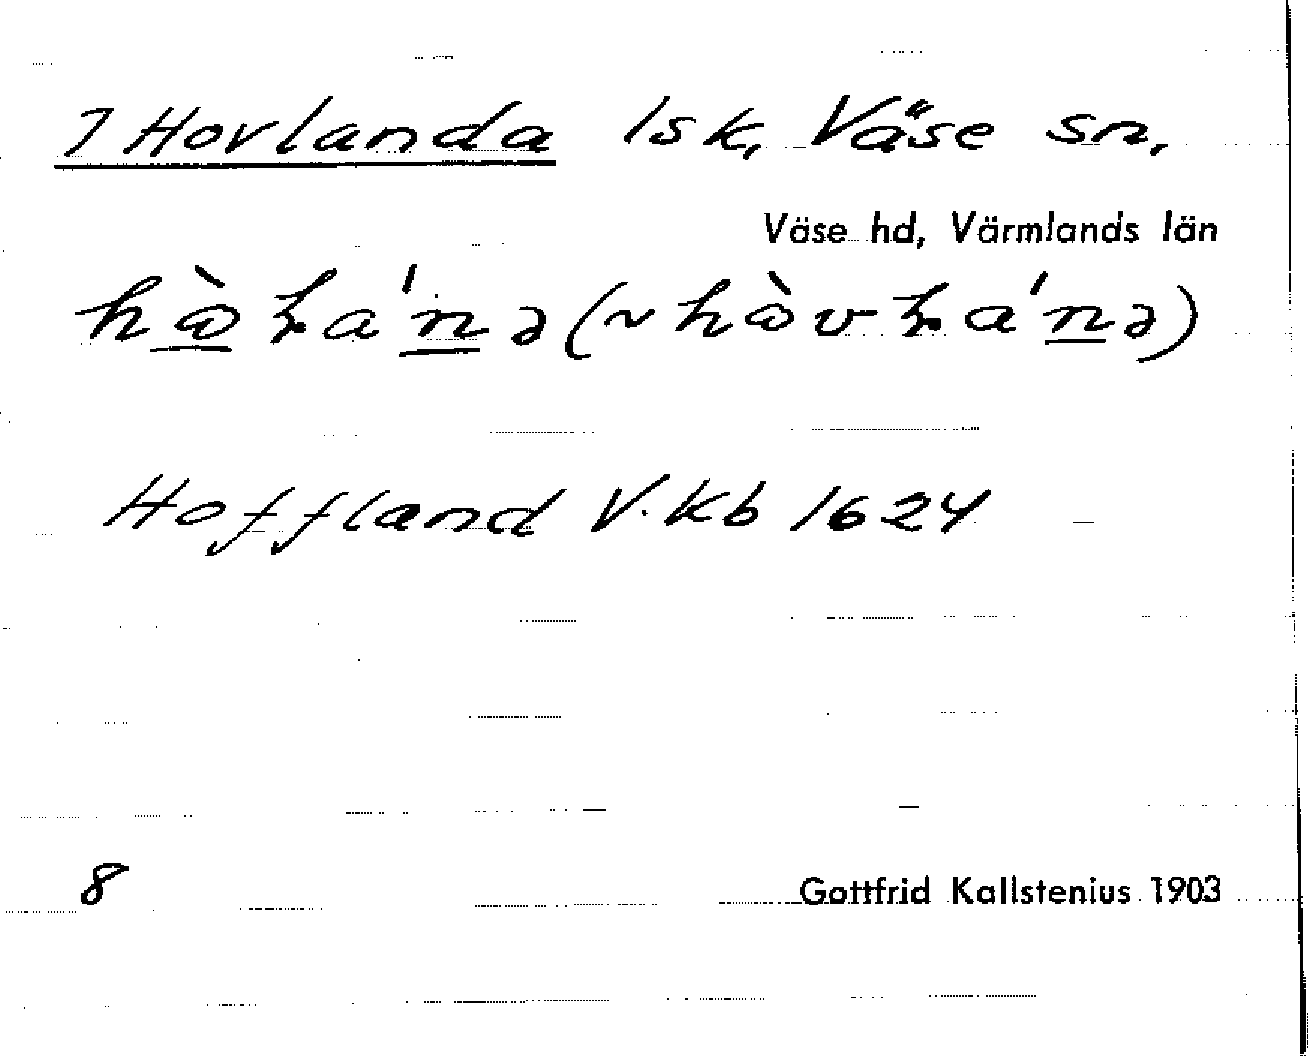 7 Hovlanda 1sk, Väse sn,
Väse hd, Värmlands län
Hoffland V. Kb 1624
8
Gottfrid Kallstenius 1903